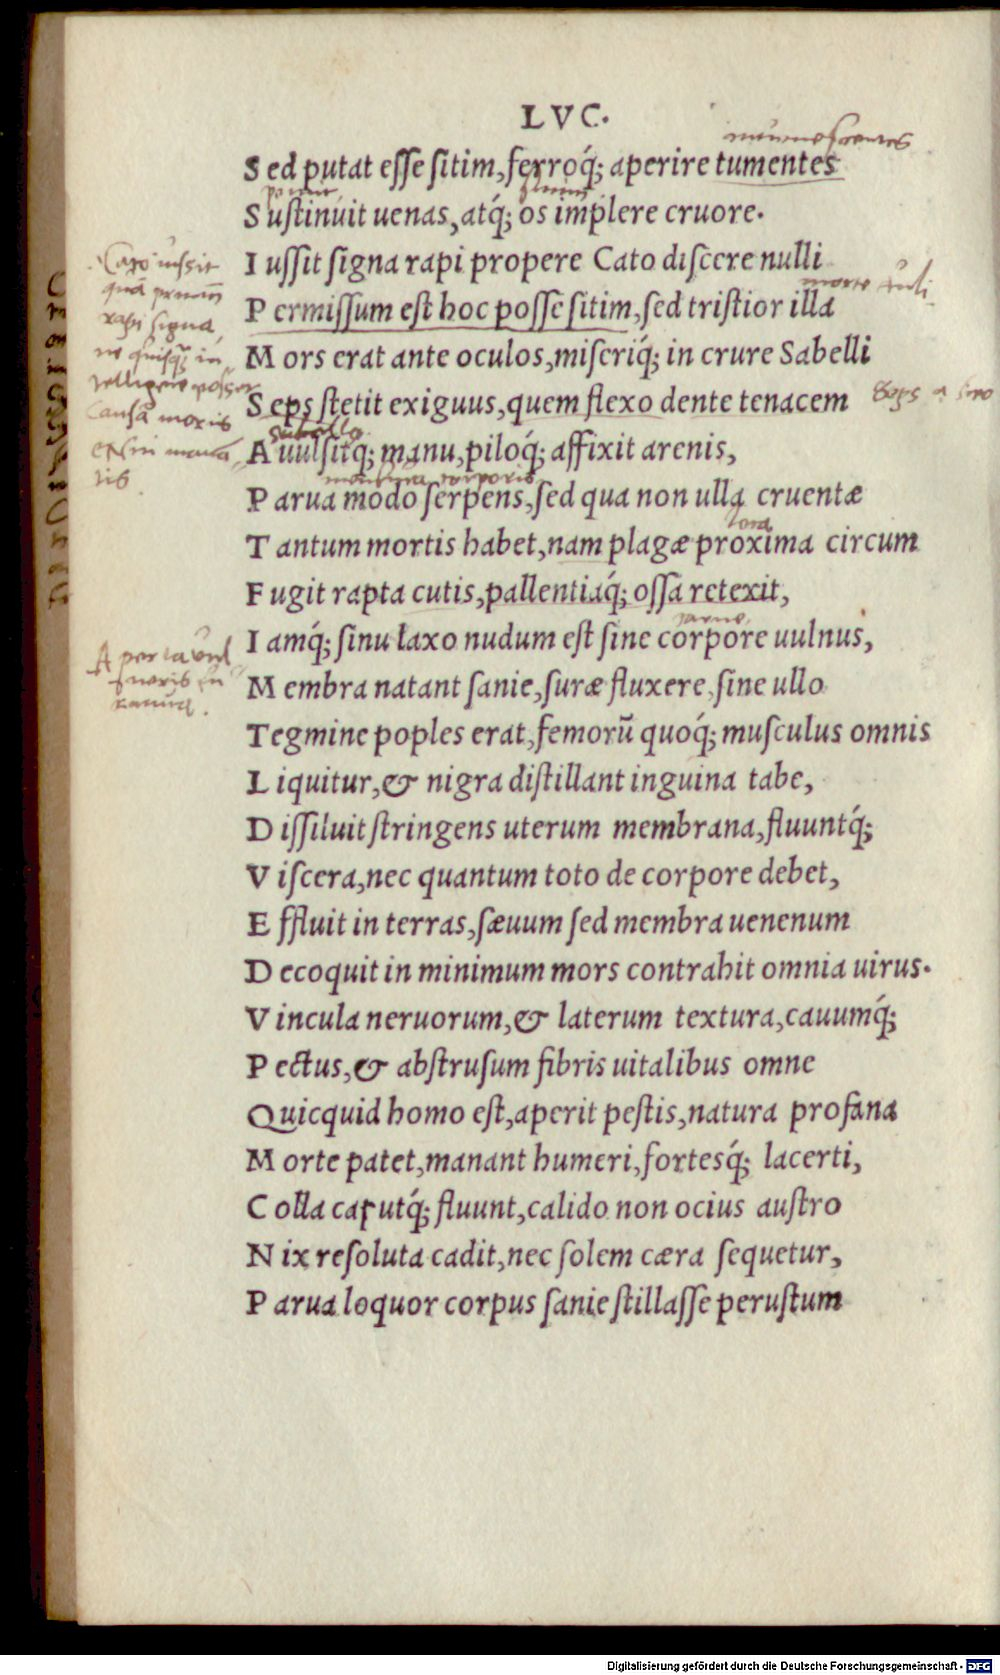 LVC.
Sed putat esse sitim, ferroq́; aperire tumentes
Sustinuit uenas, atq́; os implere cruore.
Iussit signa rapi propere Cato discere nulli
Permissum est hoc posse sitim, sed tristior illa
Mors erat ante oculos, miseriq́; in crure Sabelli
Seps stetit exiguus, quem flexo dente tenacem
Seps a
Auulsitq́; manu, piloq́; affixit arenis,
Parua modo serpens, sed qua non ulla cruentæ
Tantum mortis habet, nam plagæ proxima circum
Fugit rapta cutis, pallentiaq́; ossa retexit,
Iamq́; sinu laxo nudum est sine corpore uulnus,
Membra natant sanie, suræ fluxere, sine ullo
Tegmine poples erat, femorū quoq́; musculus omnis
Liquitur, & nigra distillant inguina tabe,
Dissiluit stringens uterum membrana, fluuntq́;
Viscera, nec quantum toto de corpore debet,
Effluit in terras, sæuum sed membra uenenum
Decoquit in minimum mors contrahit omnia uirus.
Vincula neruorum, & laterum textura, cauumq́;
Pectus, & abstrusum fibris uitalibus omne
Quicquid homo est, aperit pestis, natura profana
Morte patet, manant humeri, fortesq́; lacerti,
Colla caputq́; fluunt, calido non ocius austro
Nix resoluta cadit, nec solem cæra sequetur,
Parua loquor corpus sanie stillasse perustum
Cato iussit
rapi signa
causā mortis
Digitalisierung gefördert durch die Deutsche Forschungsgemeinschaft - DFG